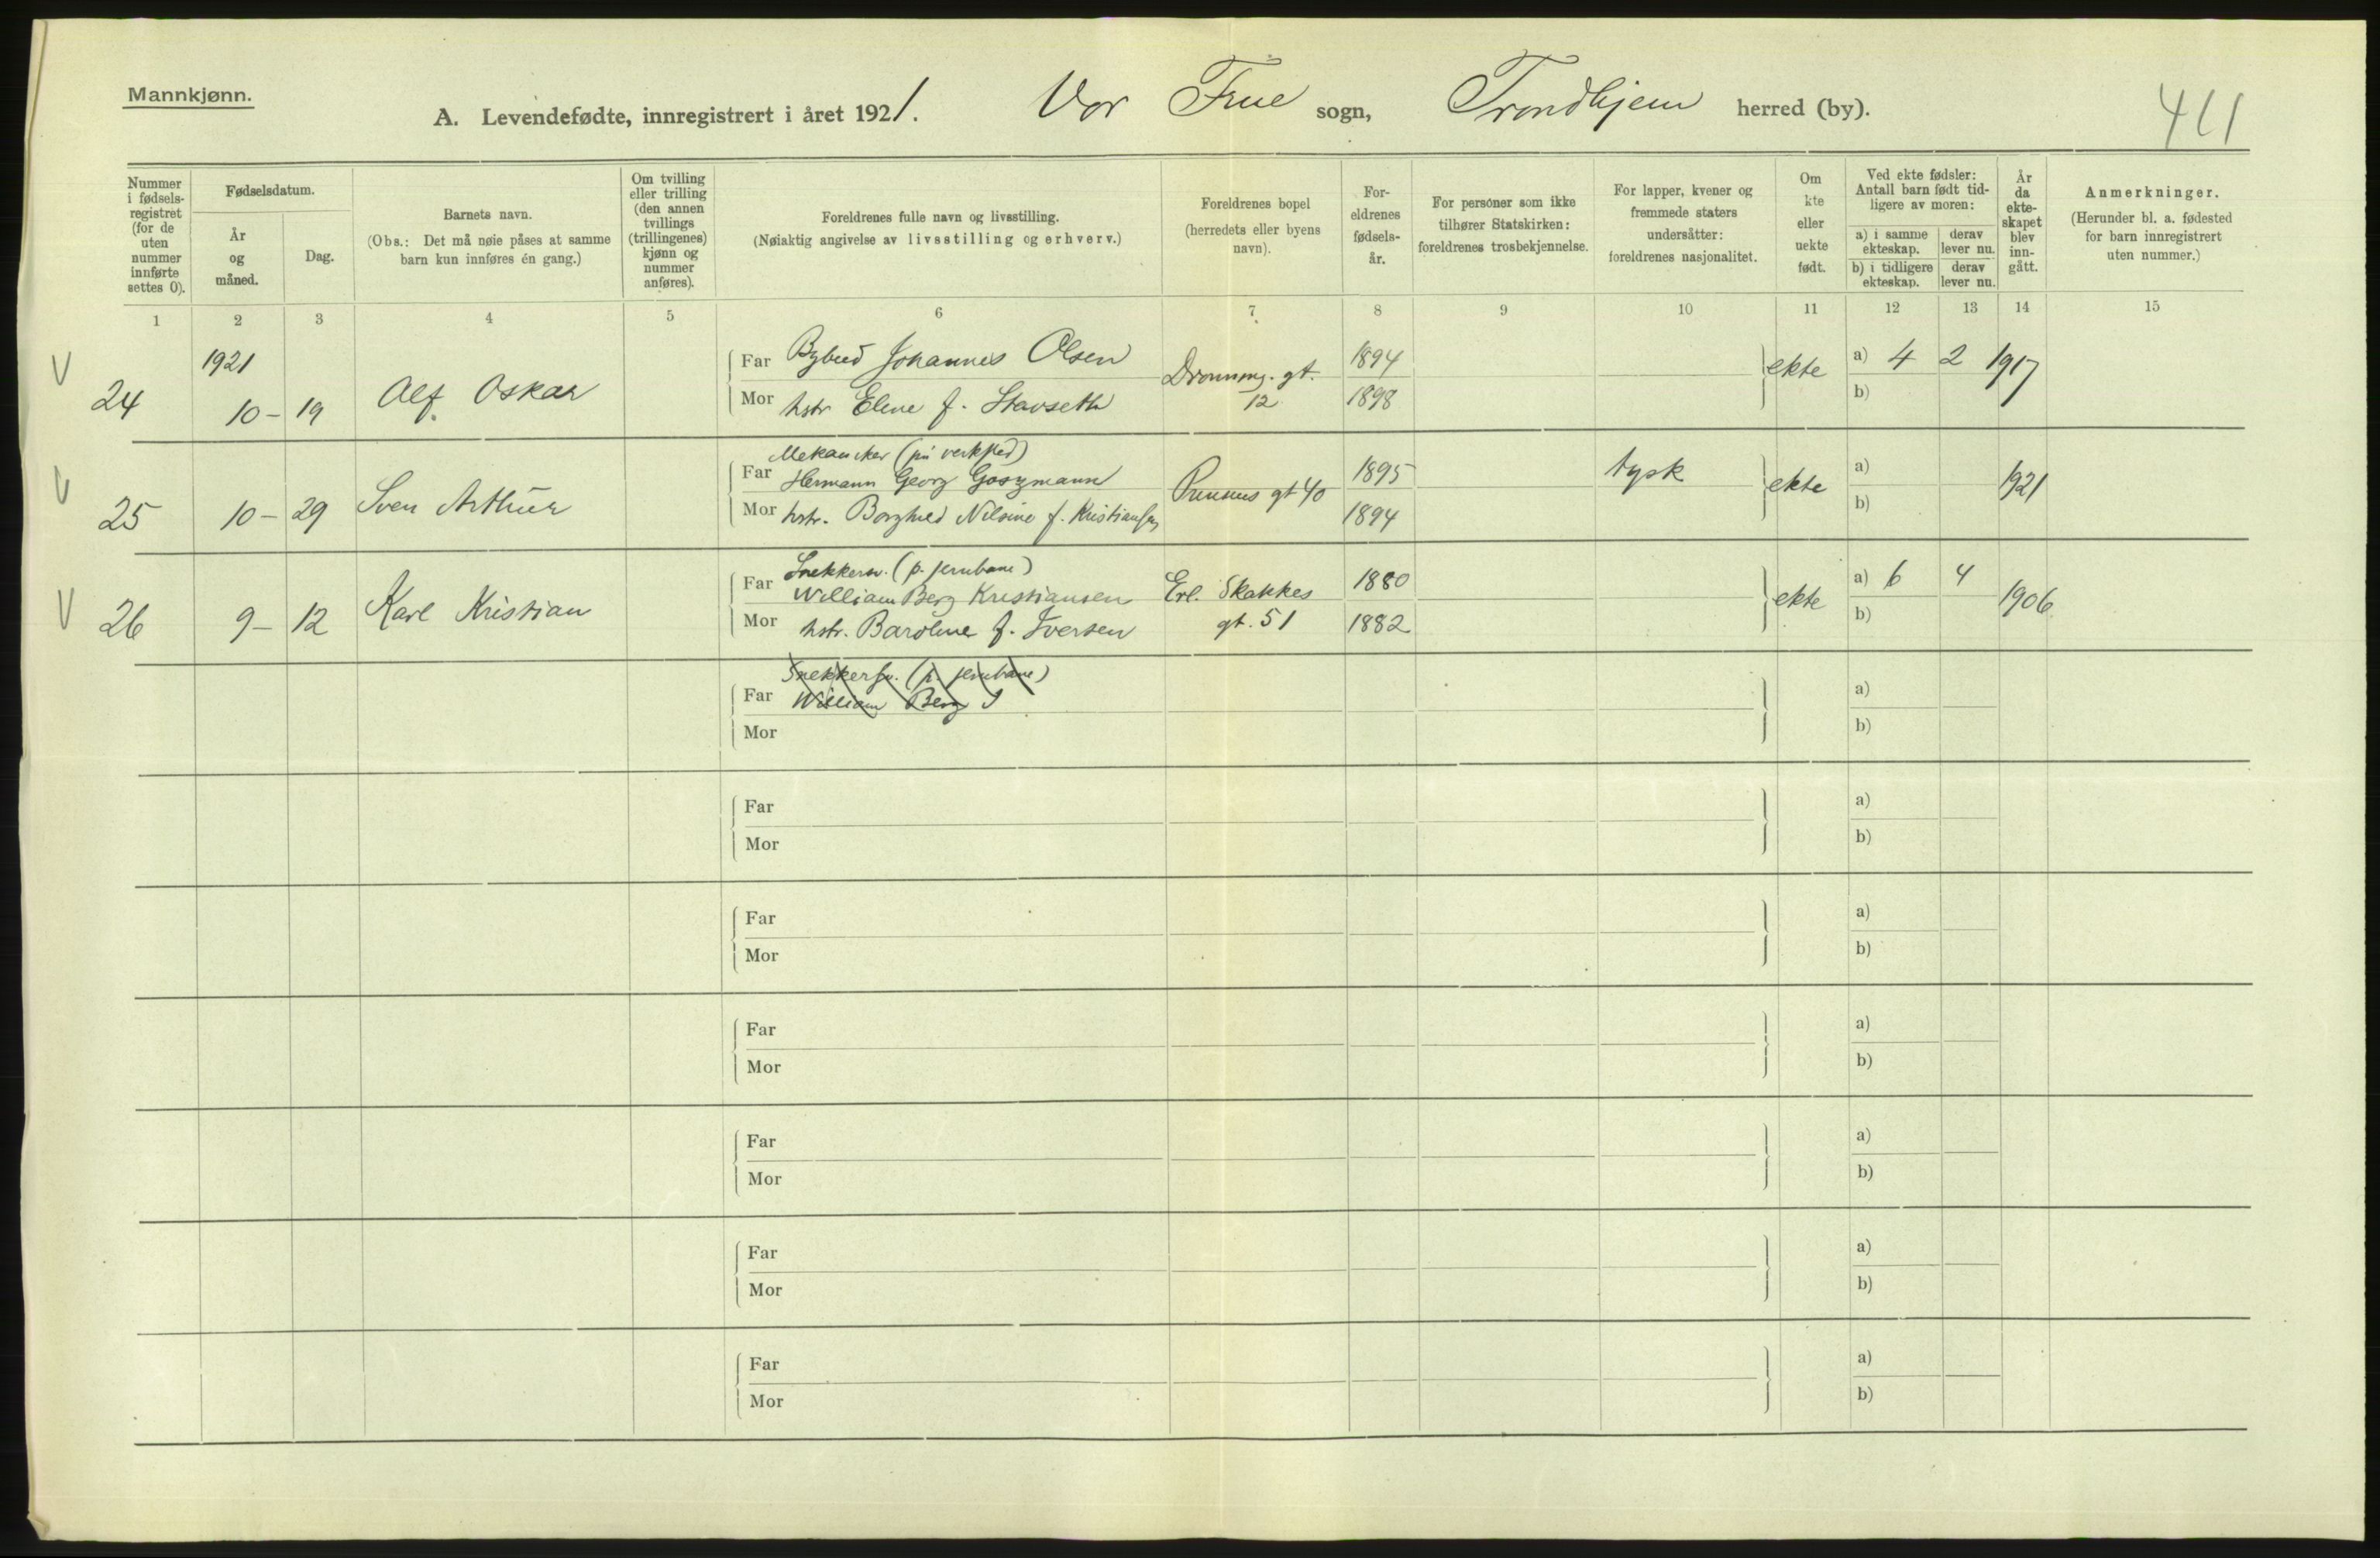 Mannkjønn.
A. Levendefødte, innregistrert i året 1921. Vor Frue sogn, Trondhjem herred (by).
411
Nummer i fødselsregistret (for de uten nummer innførte settes 0).
Fødselsdatum.
År og måned.
Dag.
Barnets navn.
(Obs.: Det må nøie påses at samme barn kun innføres én gang.)
Om tvilling eller trilling (den annen tvillings (trillingenes) kjønn og nummer anføres).
Foreldrenes fulle navn og livsstilling.
(Nøiaktig angivelse av livsstilling og erhverv.)
Foreldrenes bopel
(herredets eller byens navn).
For-eldrenes fødsels-år.
For personer som ikke tilhører Statskirken: foreldrenes trosbekjennelse.
For lapper, kvener og fremmede staters undersåtter: foreldrenes nasjonalitet.
Om kte eller uekte født.
Ved ekte fødsler: Antall barn født tid-ligere av moren:
a) i samme ekteskap. derav lever nu.
b) i tidligere ekteskap. derav lever nu.
År da ekte-skapet blev inn-gått.
Anmerkninger.
(Herunder bl. a. fødested for barn innregistrert uten nummer.)
1 2 3 4 5 6 7 8 9 10 11 12 13 14 15
V 24 1921 10 - 19 Alf Oskar
Far Bybud Johannes Olsen Dronning. gt. 12 1894 ekte a) 4 2 1917
Mor hstr Eline f. Stavseth 1898 b)
V 25 10 - 29 Sven Arthur
Mekaniker (på verksted)
Far Hermann Georg 1895 tysk ekte a) 1921
Mor hstr. Borghild Nilsine f. Kristiansen gt 40 1894 b)
V 26 9 - 12 Karl Kristian
Snekkersv. (p. jernbane)
Far William Berg Kristiansen Erl. Skakkes gt. 51 1880 ekte a) 6 4 1906
Mor hstr. Baroline f. Iversen 1882 b)
Snekkersv. (p. jernbane)
Far William Berg a)
Mor b)
Far a)
Mor b)
Far a)
Mor b)
Far a)
Mor b)
Far a)
Mor b)
Far a)
Mor b)
Far a)
Mor b)